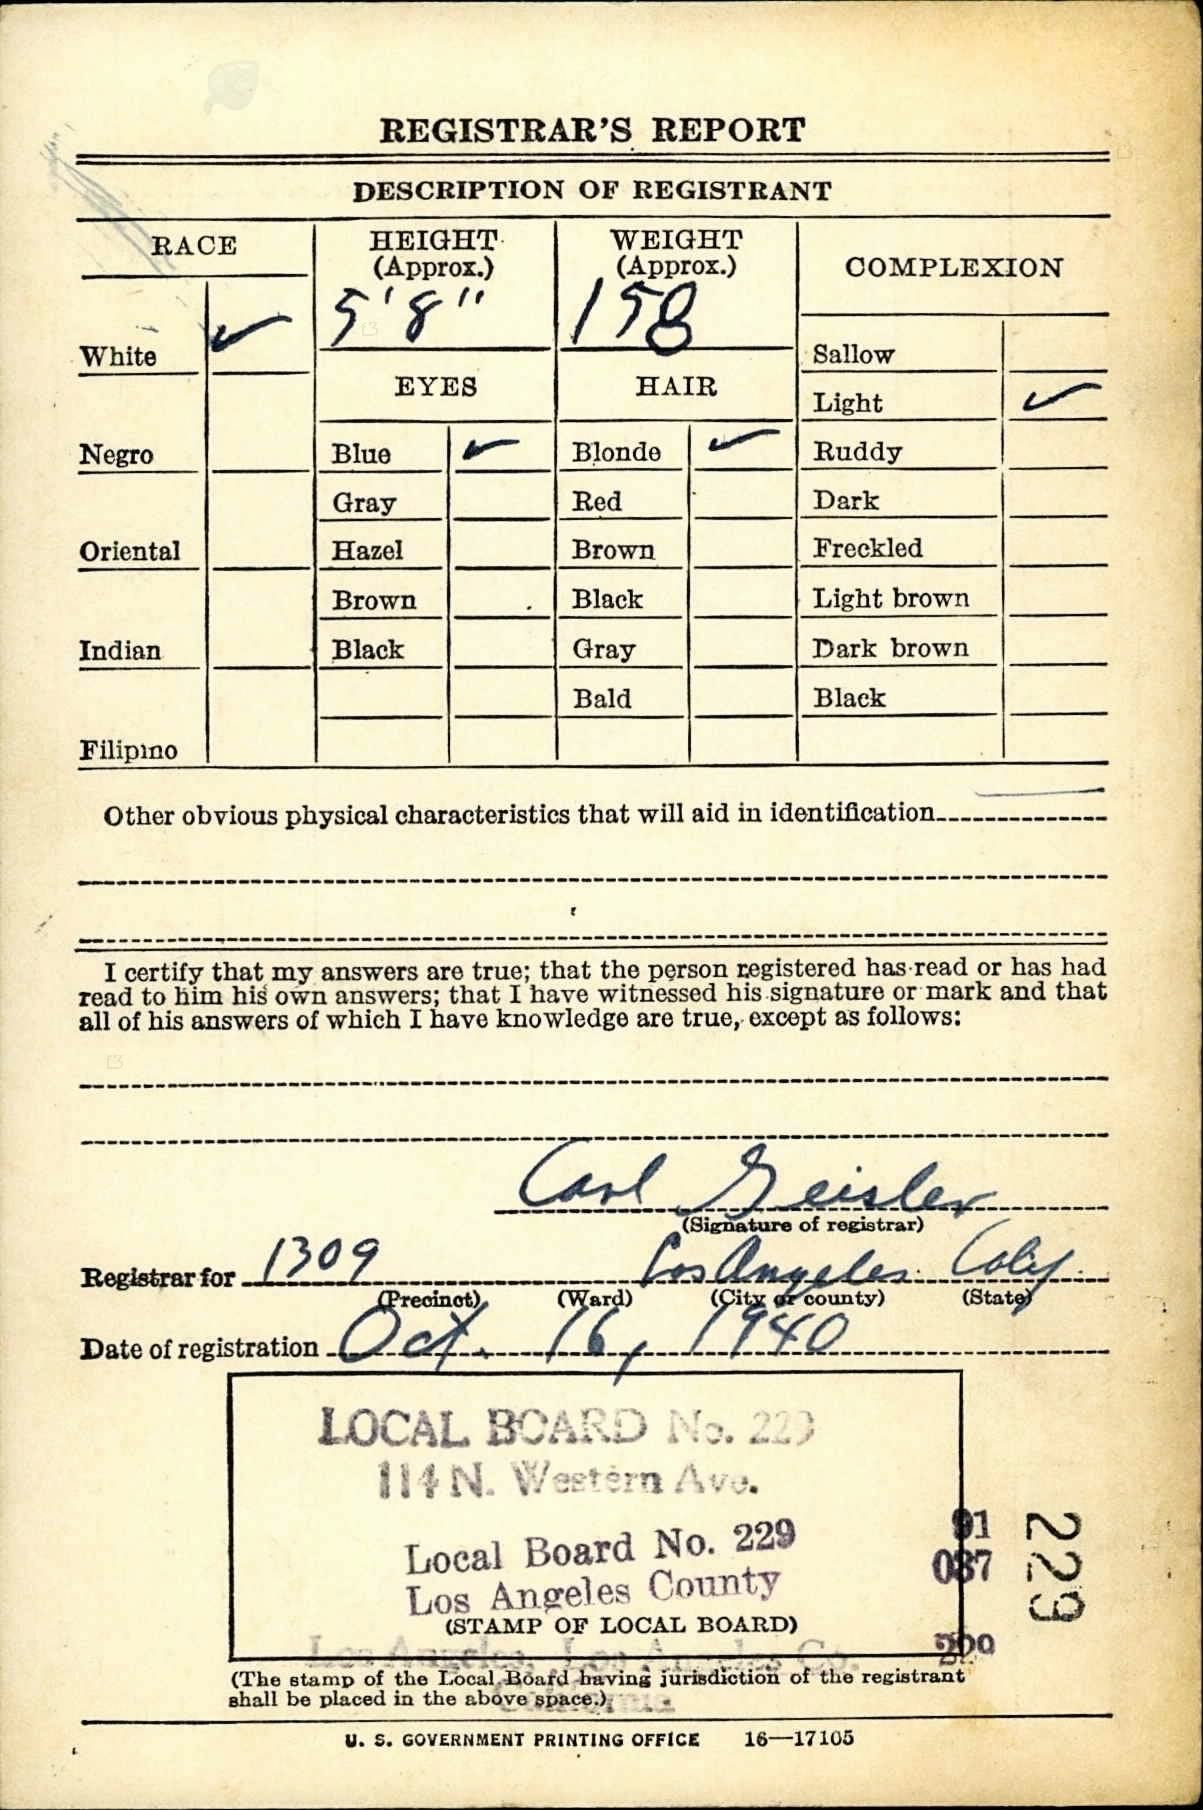 REGISTRAR'S REPORT
DESCRIPTION OF REGISTRANT
RACE
White ✓
Negro
Oriental
Indian
Filipino
HEIGHT
(Approx.)
5'8"
EYES
Blue ✓
Gray
Hazel
Brown
Black
WEIGHT
(Approx.)
158
HAIR
Blonde ✓
Red
Brown
Black
Gray
Bald
COMPLEXION
Sallow
Light ✓
Ruddy
Dark
Freckled
Light brown
Dark brown
Black
Other obvious physical characteristics that will aid in identification
I certify that my answers are true; that the person registered has read or has had
read to him his own answers; that I have witnessed his signature or mark and that
all of his answers of which I have knowledge are true, except as follows:
Carl Geisler
(Signature of registrar)
Registrar for 1309 Los Angeles Calif.
(Precinct) (Ward) (City or county) (State)
Date of registration Oct. 16, 1940
LOCAL BOARD No. 229
114 N. Western Ave.
Local Board No. 229
Los Angeles County
91
037
229
229
(STAMP OF LOCAL BOARD)
Los Angeles, Los Angeles Co.
California
(The stamp of the Local Board having jurisdiction of the registrant
shall be placed in the above space.)
U. S. GOVERNMENT PRINTING OFFICE 16—17105